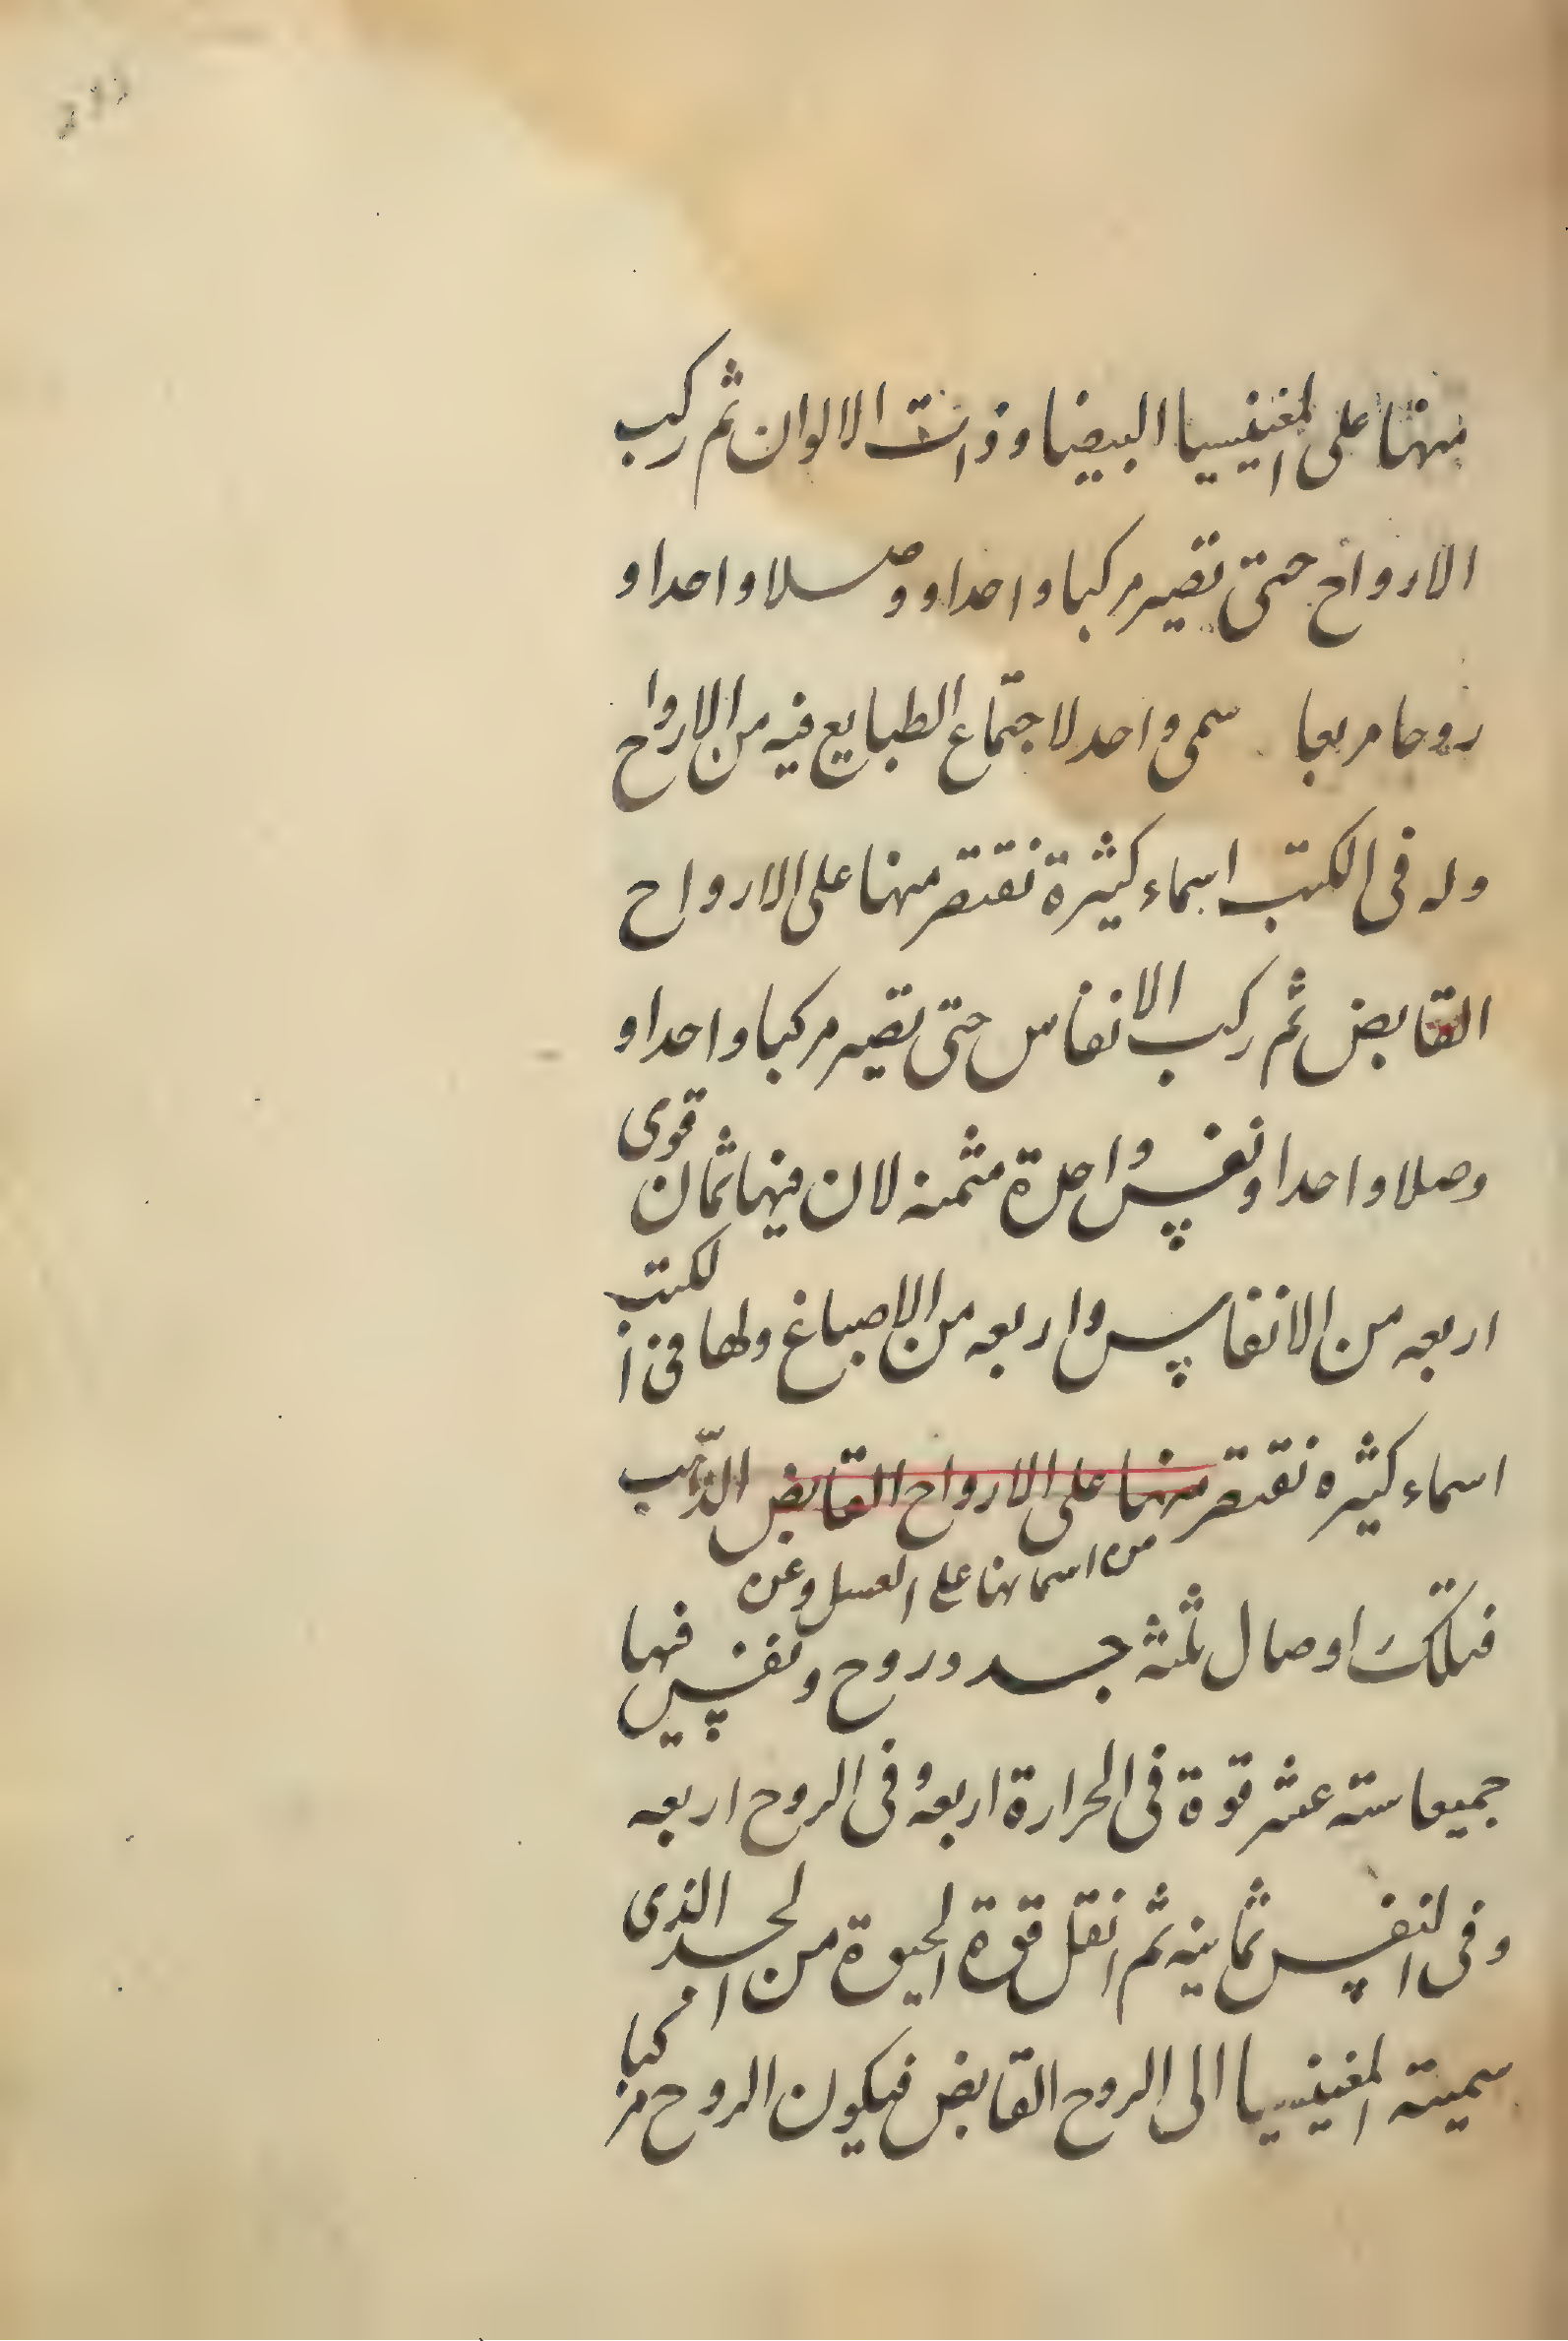 منها على المغنيسيا البيضا وذات الالوان ثم ركب
الارواح حتى تصير مركبا واحدا ووصلا واحدا و
روحا مربعا سمى واحد لاجتماع الطبايع فيه من الارواح
وله فى الكتب اسماء كثيرة نقتصر منها على الارواح
القابض ثم ركب الانفاس حتى تصير مركبا واحدا و
وصلا واحدا ونفس واحدة مثمنه لان فيها ثمان قوى
اربعه من الانفاس واربعه من الاصباغ ولها فى الكتب
اسماء كثيره نقتصر منها على الارواح القابض الذهب
من اسمائها على العسل وعن
فتلك اوصال ثلثة جسد وروح ونفس فيها
جميعا سته عشر قوة فى الحرارة اربعه وفى الروح اربعه
وفى النفس ثمانيه ثم انقل قوة الحيوة من الجسد الذى
سميته المغنيسيا الى الروح القابض فيكون الروح مركبا